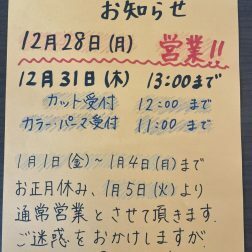 お知らせ
12月28日(月) 営業!!
12月31日(木) 13:00まで
カット受付 12:00まで
カラー・パーマ受付 11:00まで
1月1日(金)~1月4日(月)まで
お正月休み、1月5日(火)より
通常営業とさせて頂きます.
ご迷惑をおかけしますが